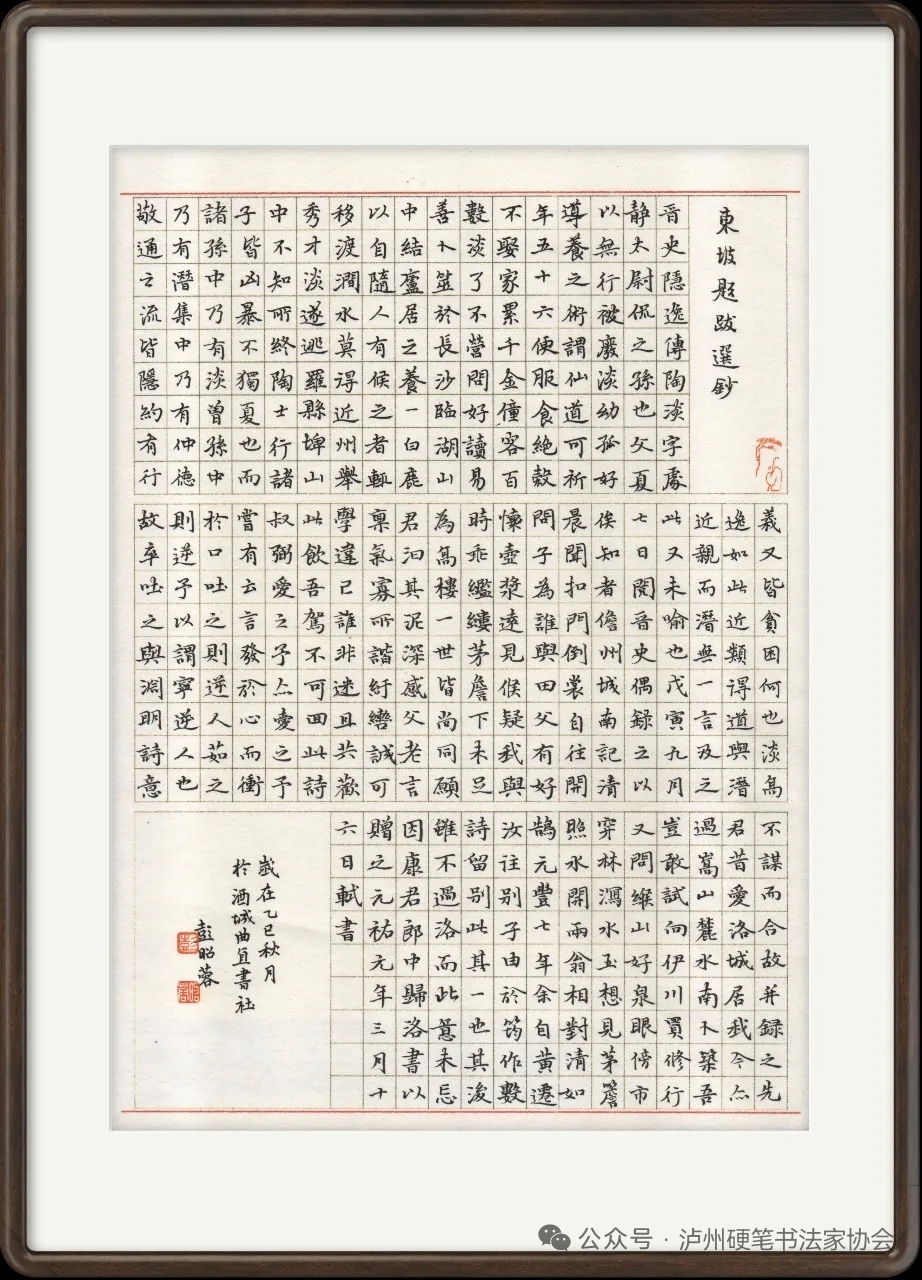 東坡題跋選鈔
晉史隱逸傳陶淡字處
靜太尉侃之孫也父夏
以無行被廢淡幼孤好
導養之術謂仙道可祈
年五十六便服食絶穀
不娶家累千金僮客百
數淡了不營問好讀易
善卜筮於長沙臨湖山
中結廬居之養一白鹿
以自隨人有候之者輒
移渡澗水莫得近州舉
秀才淡遂逃羅縣埤山
中不知所終陶士行諸
子皆凶暴不獨夏也而
諸孫中乃有淡曾孫中
乃有潛集中乃有仲德
敬通之流皆隱約有行
義又皆貧困何也淡髙
逸如此近類得道與潛
近親而潛無一言及之
此又未喻也戊寅九月
七日閱晉史偶録之以
俟知者儋州城南記清
晨聞扣門倒裳自往開
問子為誰與田父有好
懷壺漿遠見候疑我與
時乖繿縷茅簷下未足
為髙樓一世皆尚同願
君汩其泥深感父老言
稟氣寡所諧紆轡誠可
學違己誰非迷且共歡
此飲吾駕不可回此詩
叔弼愛之予亦愛之予
嘗有云言發於心而衝
於口吐之則逆人茹之
則逆予以謂寧逆人也
故卒吐之與淵明詩意
不謀而合故并録之先
君昔愛洛城居我今亦
過嵩山麓水南卜築吾
豈敢試向伊川買修行
又問緱山好泉眼傍市
穿林瀉水玉想見茅簷
照水開兩翁相對清如
鵠元豐七年余自黄遷
汝往别子由於筠作數
詩留别此其一也其後
雖不過洛而此意未忘
因康君郎中歸洛書以
贈之元祐元年三月十
六日軾書
歲在乙巳秋月
於酒城曲直書社
彭昭蓉
公众号·泸州硬笔书法家协会